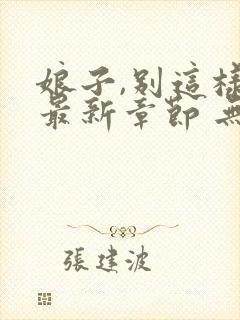 娘子,別這樣
最新章節 無
張建波